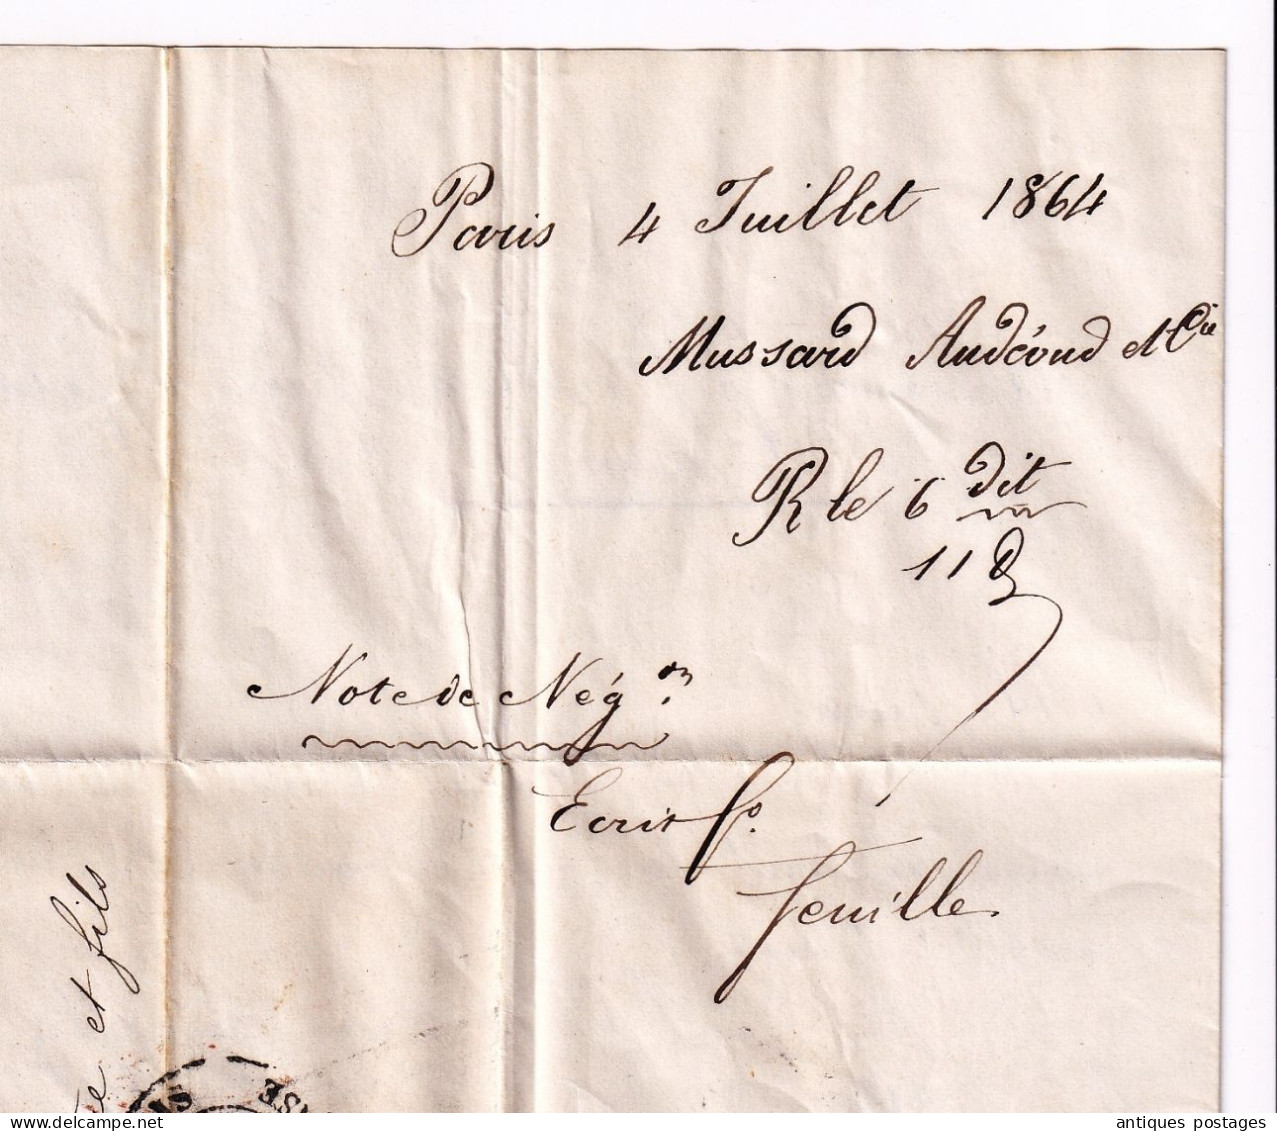 Paris 4 Juillet 1864
Mussard Audéoud et Cie
R le 6 dit
11
Note de Nég.on
Ecrit fo.
feuille.
et fils
antiques postages